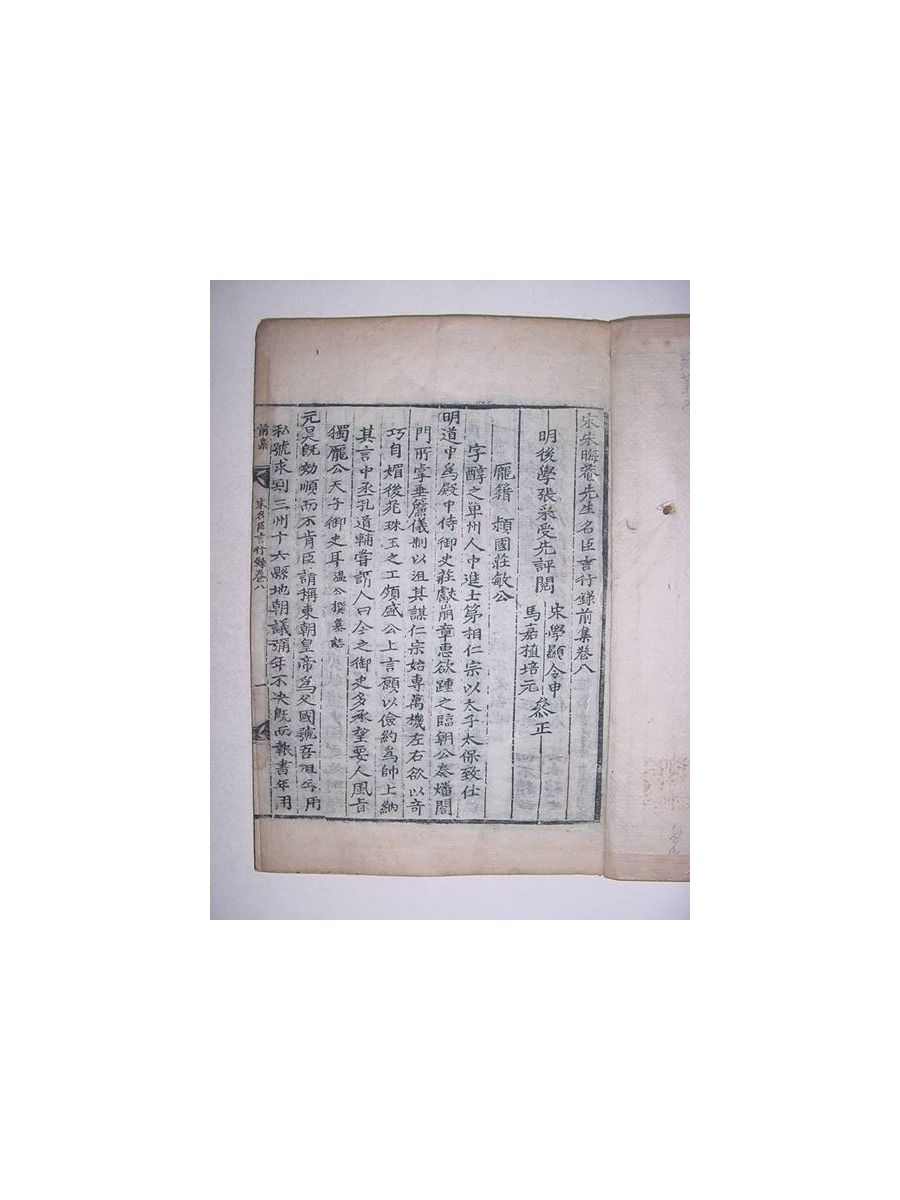 宋朱晦菴先生名臣言行錄前集卷八
明後學張采受先評閱
宋學顯令申
馬嘉植培元
叅正
龐籍 頴國莊敏公
字醇之單州人中進士第相仁宗以太子太保致仕
明道中爲殿中侍御史莊獻崩章惠欲踵之臨朝公奏燔閤
門所掌垂簾儀制以沮其謀仁宗始專萬機左右欲以奇
巧自媚後苑珠玉之工頗盛公上言願以儉約爲帥上納
其言中丞孔道輔嘗謂人曰今之御史多承望要人風旨
獨龐公天子御史耳溫公撰墓誌
元昊旣効順而不肯臣請稱東朝皇帝爲父國號吾祖年用
私號求割三州十六縣地朝議彌年不决旣而報書年用
前集
宋名臣言行錄卷八
一